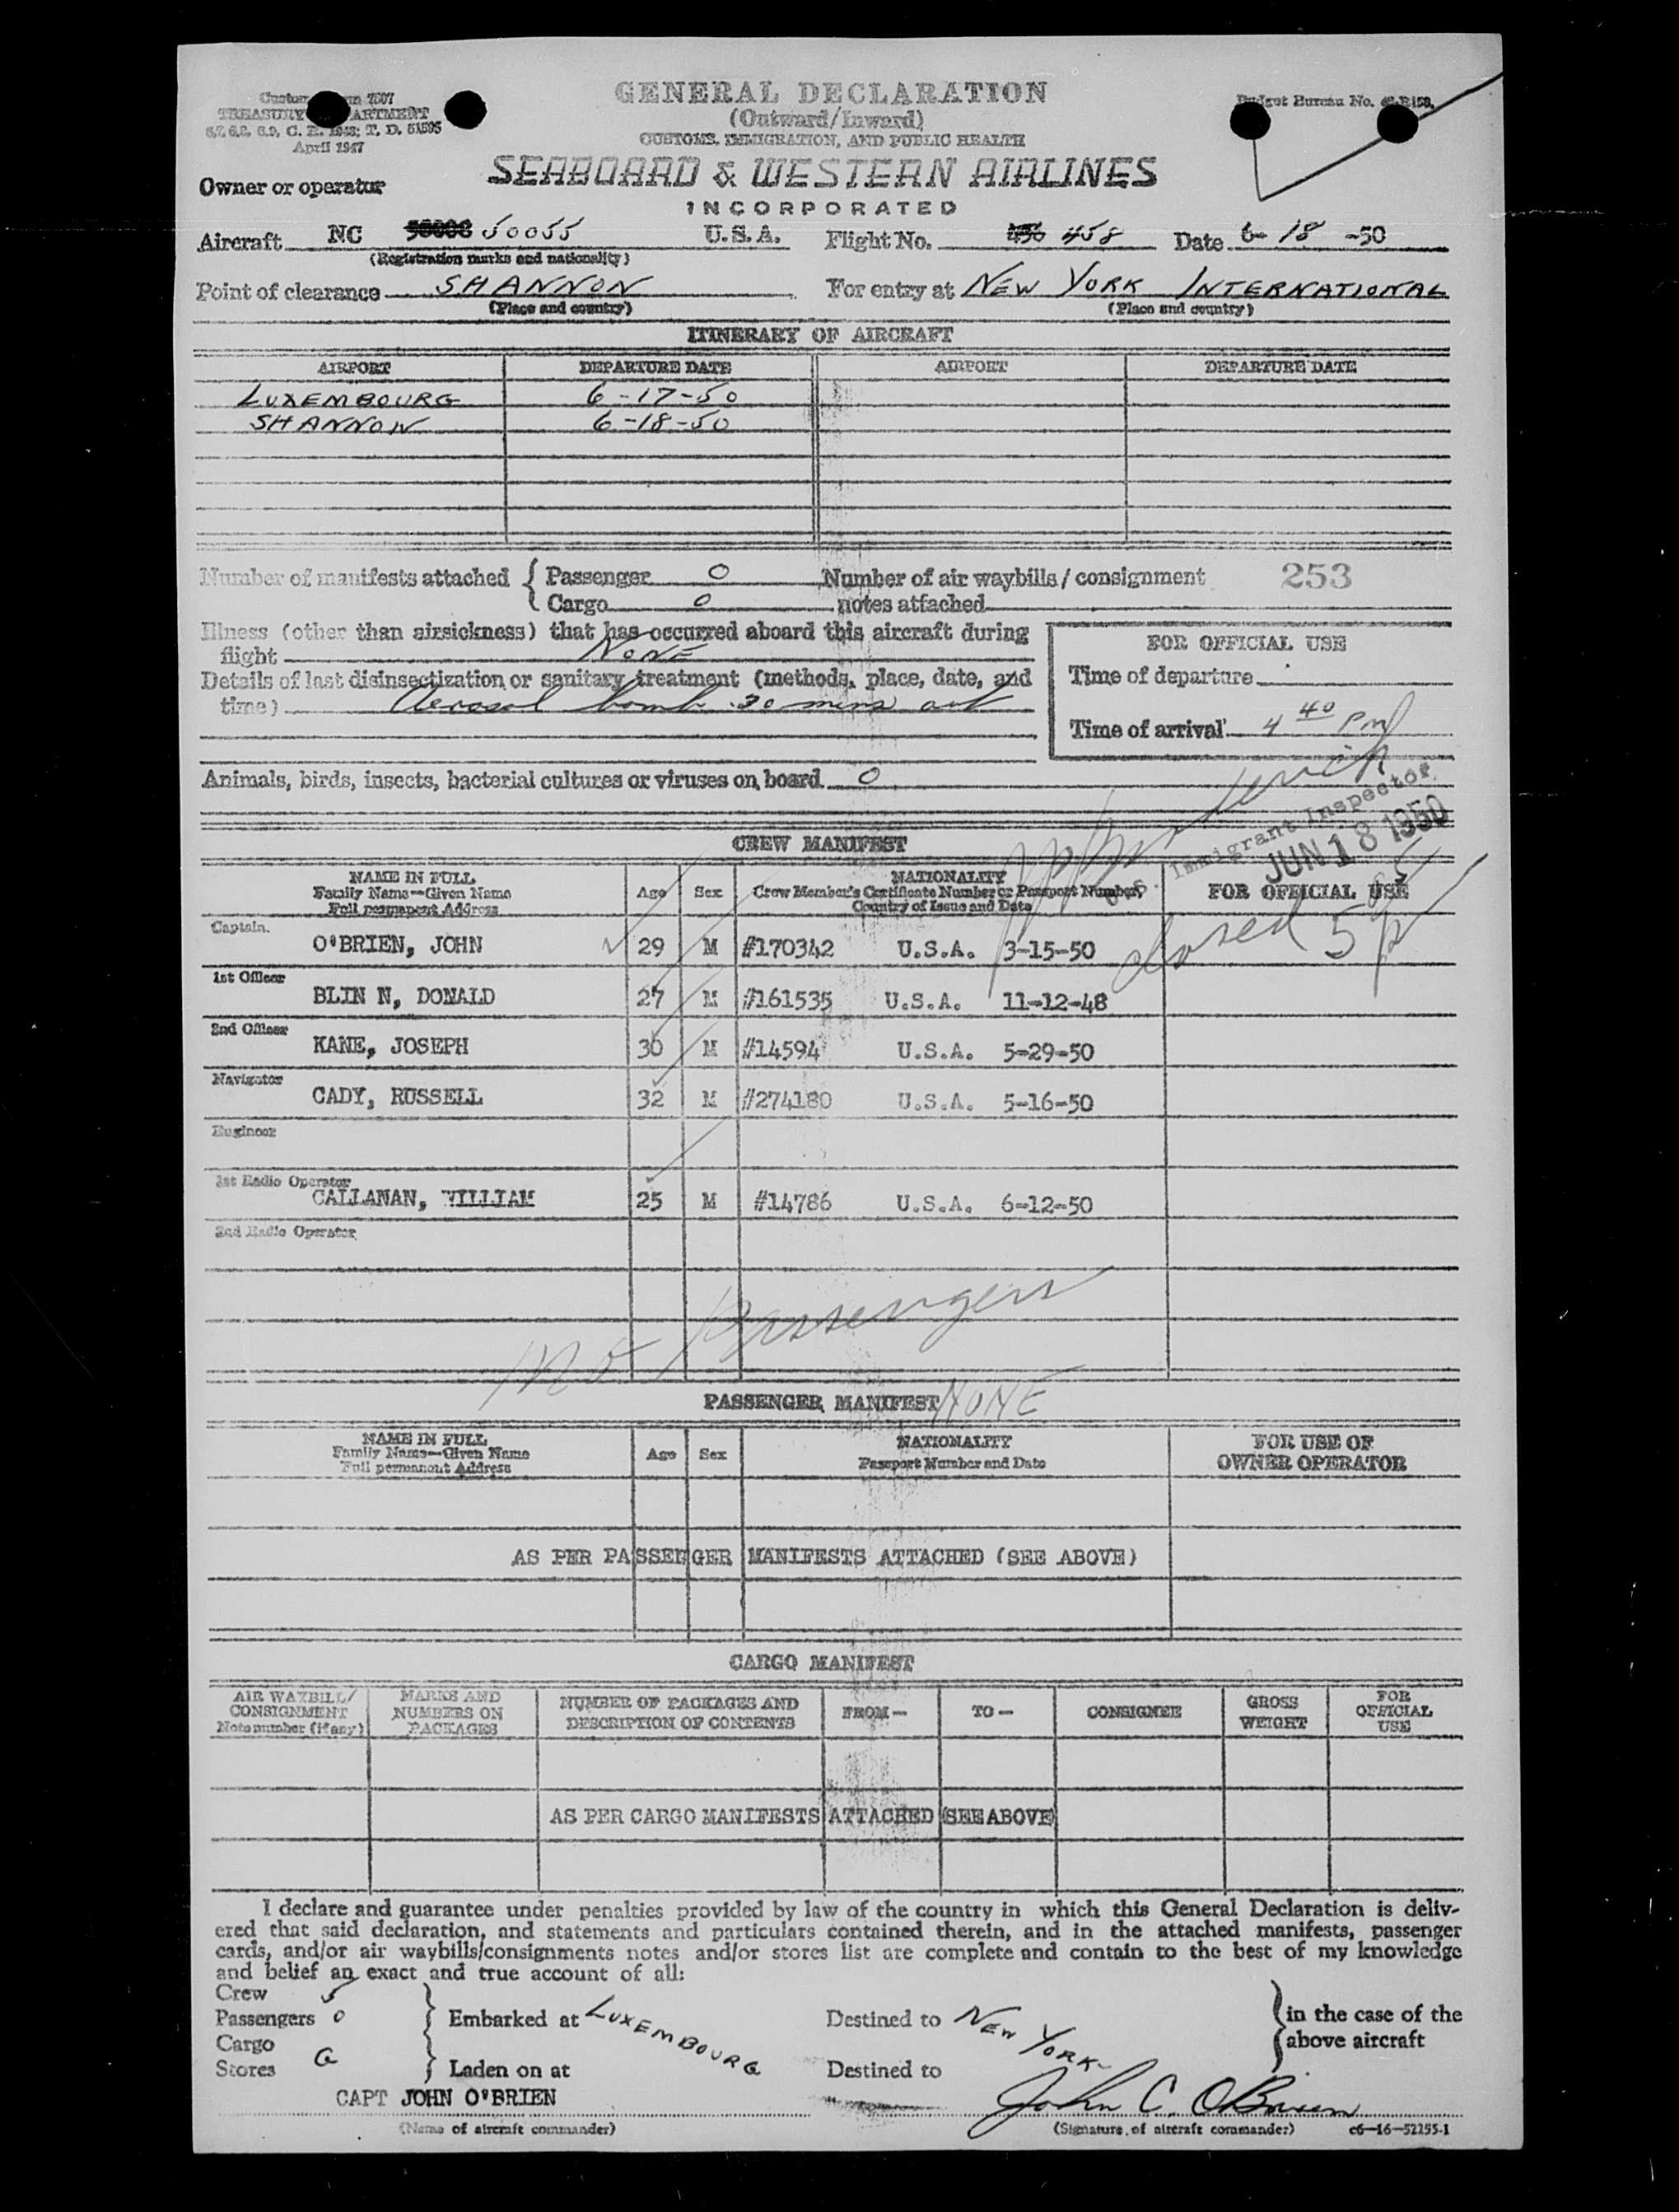 GENERAL DECLARATION
(Outward/Inward)
CUSTOMS, IMMIGRATION, AND PUBLIC HEALTH
TREASURY
April 1947
Budget Bureau No.
SEABOARD & WESTERN AIRLINES
INCORPORATED
Owner or operator
Aircraft NC 50055 U.S.A. Flight No. 458 Date 6-18-50
(Registration marks and nationality)
Point of clearance SHANNON For entry at NEW YORK INTERNATIONAL
(Place and country) (Place and country)
ITINERARY OF AIRCRAFT
AIRPORT DEPARTURE DATE AIRPORT DEPARTURE DATE
LUXEMBOURG 6-17-50
SHANNON 6-18-50
Number of manifests attached { Passenger 0 Number of air waybills/consignment 253
Cargo 0 notes attached
Illness (other than airsickness) that has occurred aboard this aircraft during
flight NONE
Details of last disinsectization or sanitary treatment (methods, place, date, and
time) Aerosol bomb 30 mins out
FOR OFFICIAL USE
Time of departure
Time of arrival 4 40 PM
Animals, birds, insects, bacterial cultures or viruses on board 0
Immigrant Inspector
JUN 18 1950
CREW MANIFEST
NAME IN FULL
Family Name—Given Name
Full permanent Address
Age Sex
NATIONALITY
Crew Member's Certificate Number or Passport Number,
Country of Issue and Date
FOR OFFICIAL USE
closed 5
Captain.
O'BRIEN, JOHN 29 M #170342 U.S.A. 3-15-50
1st Officer
BLIN N, DONALD 27 M #161535 U.S.A. 11-12-48
2nd Officer
KANE, JOSEPH 30 M #14594 U.S.A. 5-29-50
Navigator
CADY, RUSSELL 32 M #274180 U.S.A. 5-16-50
Engineer
1st Radio Operator
CALLANAN, WILLIAM 25 M #14786 U.S.A. 6-12-50
2nd Radio Operator
No Passengers
PASSENGER MANIFEST NONE
NAME IN FULL
Family Name—Given Name
Full permanent Address
Age Sex
NATIONALITY
Passport Number and Date
FOR USE OF
OWNER OPERATOR
AS PER PASSENGER MANIFESTS ATTACHED (SEE ABOVE)
CARGO MANIFEST
AIR WAYBILL/
CONSIGNMENT
Note number (if any)
MARKS AND
NUMBERS ON
PACKAGES
NUMBER OF PACKAGES AND
DESCRIPTION OF CONTENTS
FROM— TO— CONSIGNEE
GROSS
WEIGHT
FOR
OFFICIAL
USE
AS PER CARGO MANIFESTS ATTACHED (SEE ABOVE)
I declare and guarantee under penalties provided by law of the country in which this General Declaration is deliv-
ered that said declaration, and statements and particulars contained therein, and in the attached manifests, passenger
cards, and/or air waybills/consignments notes and/or stores list are complete and contain to the best of my knowledge
and belief an exact and true account of all:
Crew 5
Passengers 0 Embarked at LUXEMBOURG Destined to NEW YORK in the case of the
Cargo above aircraft
Stores Laden on at Destined to
CAPT JOHN O'BRIEN John C. O'Brien
(Name of aircraft commander) (Signature of aircraft commander) c6—16—52255-1